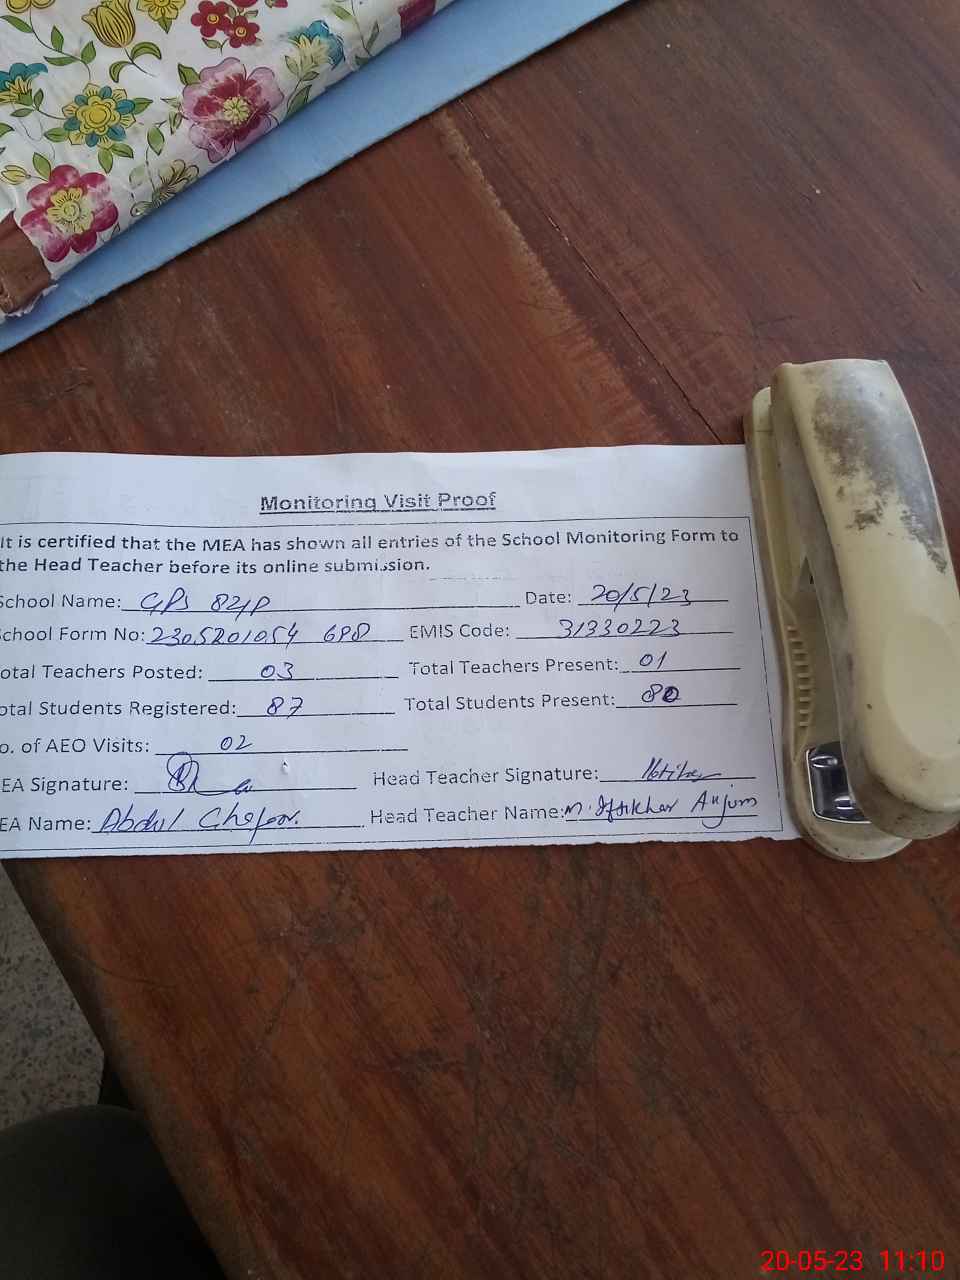 Monitoring Visit Proof
It is certified that the MEA has shown all entries of the School Monitoring Form to
the Head Teacher before its online submission.
School Name: GPS 82/P Date: 20/5/23
School Form No: 2305201054 698 EMIS Code: 31330223
otal Teachers Posted: 03 Total Teachers Present: 01
otal Students Registered: 87 Total Students Present: 80
o. of AEO Visits: 02
EA Signature: Head Teacher Signature:
EA Name: Abdul Ghafoor. Head Teacher Name: M. Iftikhar Anjum
20-05-23 11:10